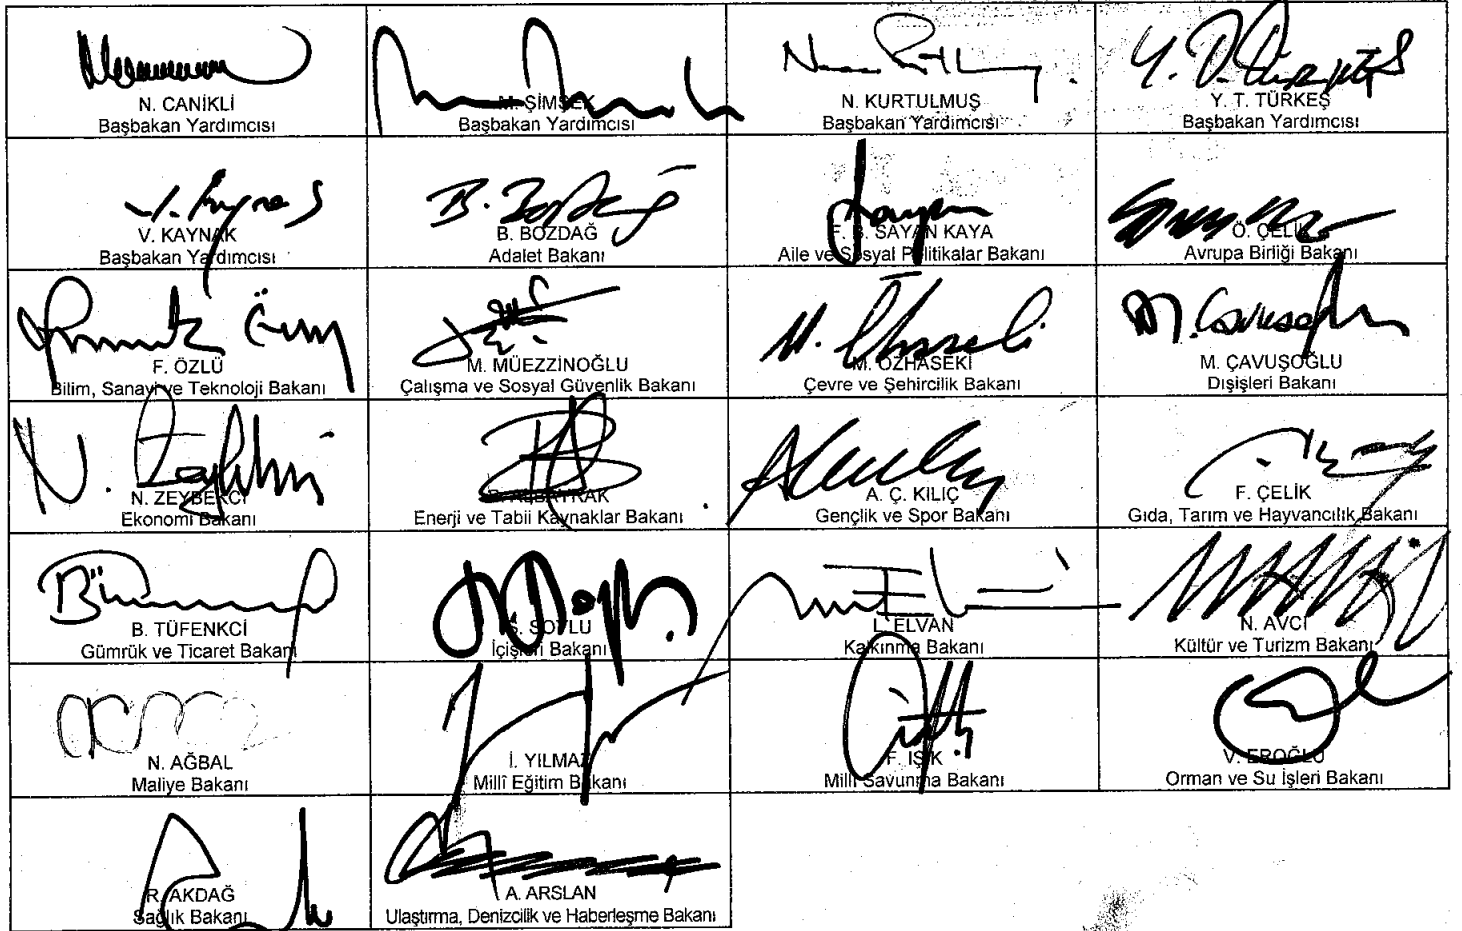 N. CANİKLİ
Başbakan Yardımcısı
M. ŞİMŞEK
Başbakan Yardımcısı
N. KURTULMUŞ
Başbakan Yardımcısı
Y. T. TÜRKEŞ
Başbakan Yardımcısı
V. KAYNAK
Başbakan Yardımcısı
B. BOZDAĞ
Adalet Bakanı
F. B. SAYAN KAYA
Aile ve Sosyal Politikalar Bakanı
Ö. ÇELİK
Avrupa Birliği Bakanı
F. ÖZLÜ
Bilim, Sanayi ve Teknoloji Bakanı
M. MÜEZZİNOĞLU
Çalışma ve Sosyal Güvenlik Bakanı
M. ÖZHASEKİ
Çevre ve Şehircilik Bakanı
M. ÇAVUŞOĞLU
Dışişleri Bakanı
N. ZEYBEKCİ
Ekonomi Bakanı
B. ALBAYRAK
Enerji ve Tabii Kaynaklar Bakanı
A. Ç. KILIÇ
Gençlik ve Spor Bakanı
F. ÇELİK
Gıda, Tarım ve Hayvancılık Bakanı
B. TÜFENKCİ
Gümrük ve Ticaret Bakanı
S. SOYLU
İçişleri Bakanı
L. ELVAN
Kalkınma Bakanı
N. AVCI
Kültür ve Turizm Bakanı
N. AĞBAL
Maliye Bakanı
İ. YILMAZ
Millî Eğitim Bakanı
F. IŞIK
Millî Savunma Bakanı
V. EROĞLU
Orman ve Su İşleri Bakanı
R. AKDAĞ
Sağlık Bakanı
A. ARSLAN
Ulaştırma, Denizcilik ve Haberleşme Bakanı